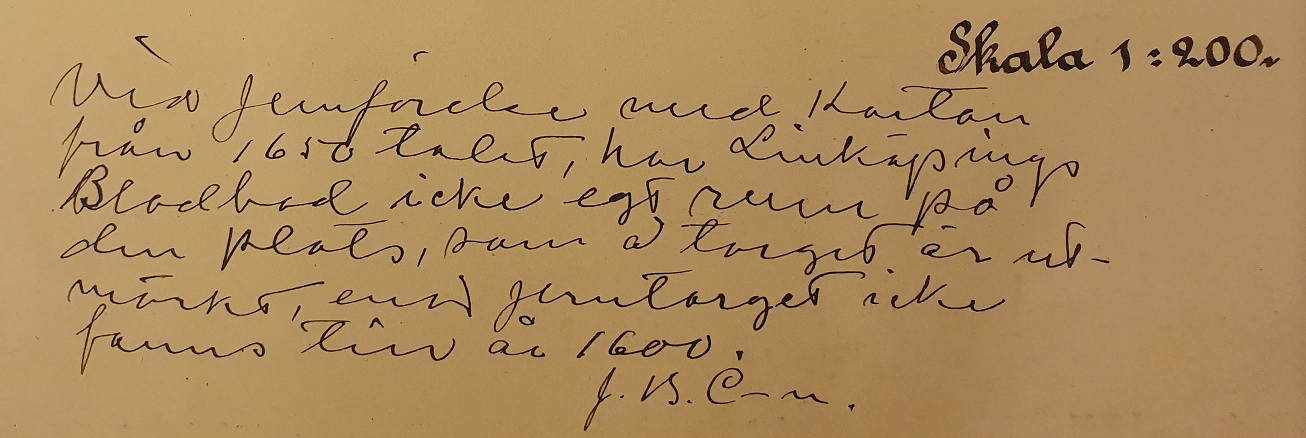 Skala 1:200.
Vid jemförelse med Kartan
från 1650 talet, har Linköpings
Blodbad icke egt rum på
den plats, som å torget är ut-
märkt, emed jerntorget icke
fanns till år 1600.
J. B. C-n.